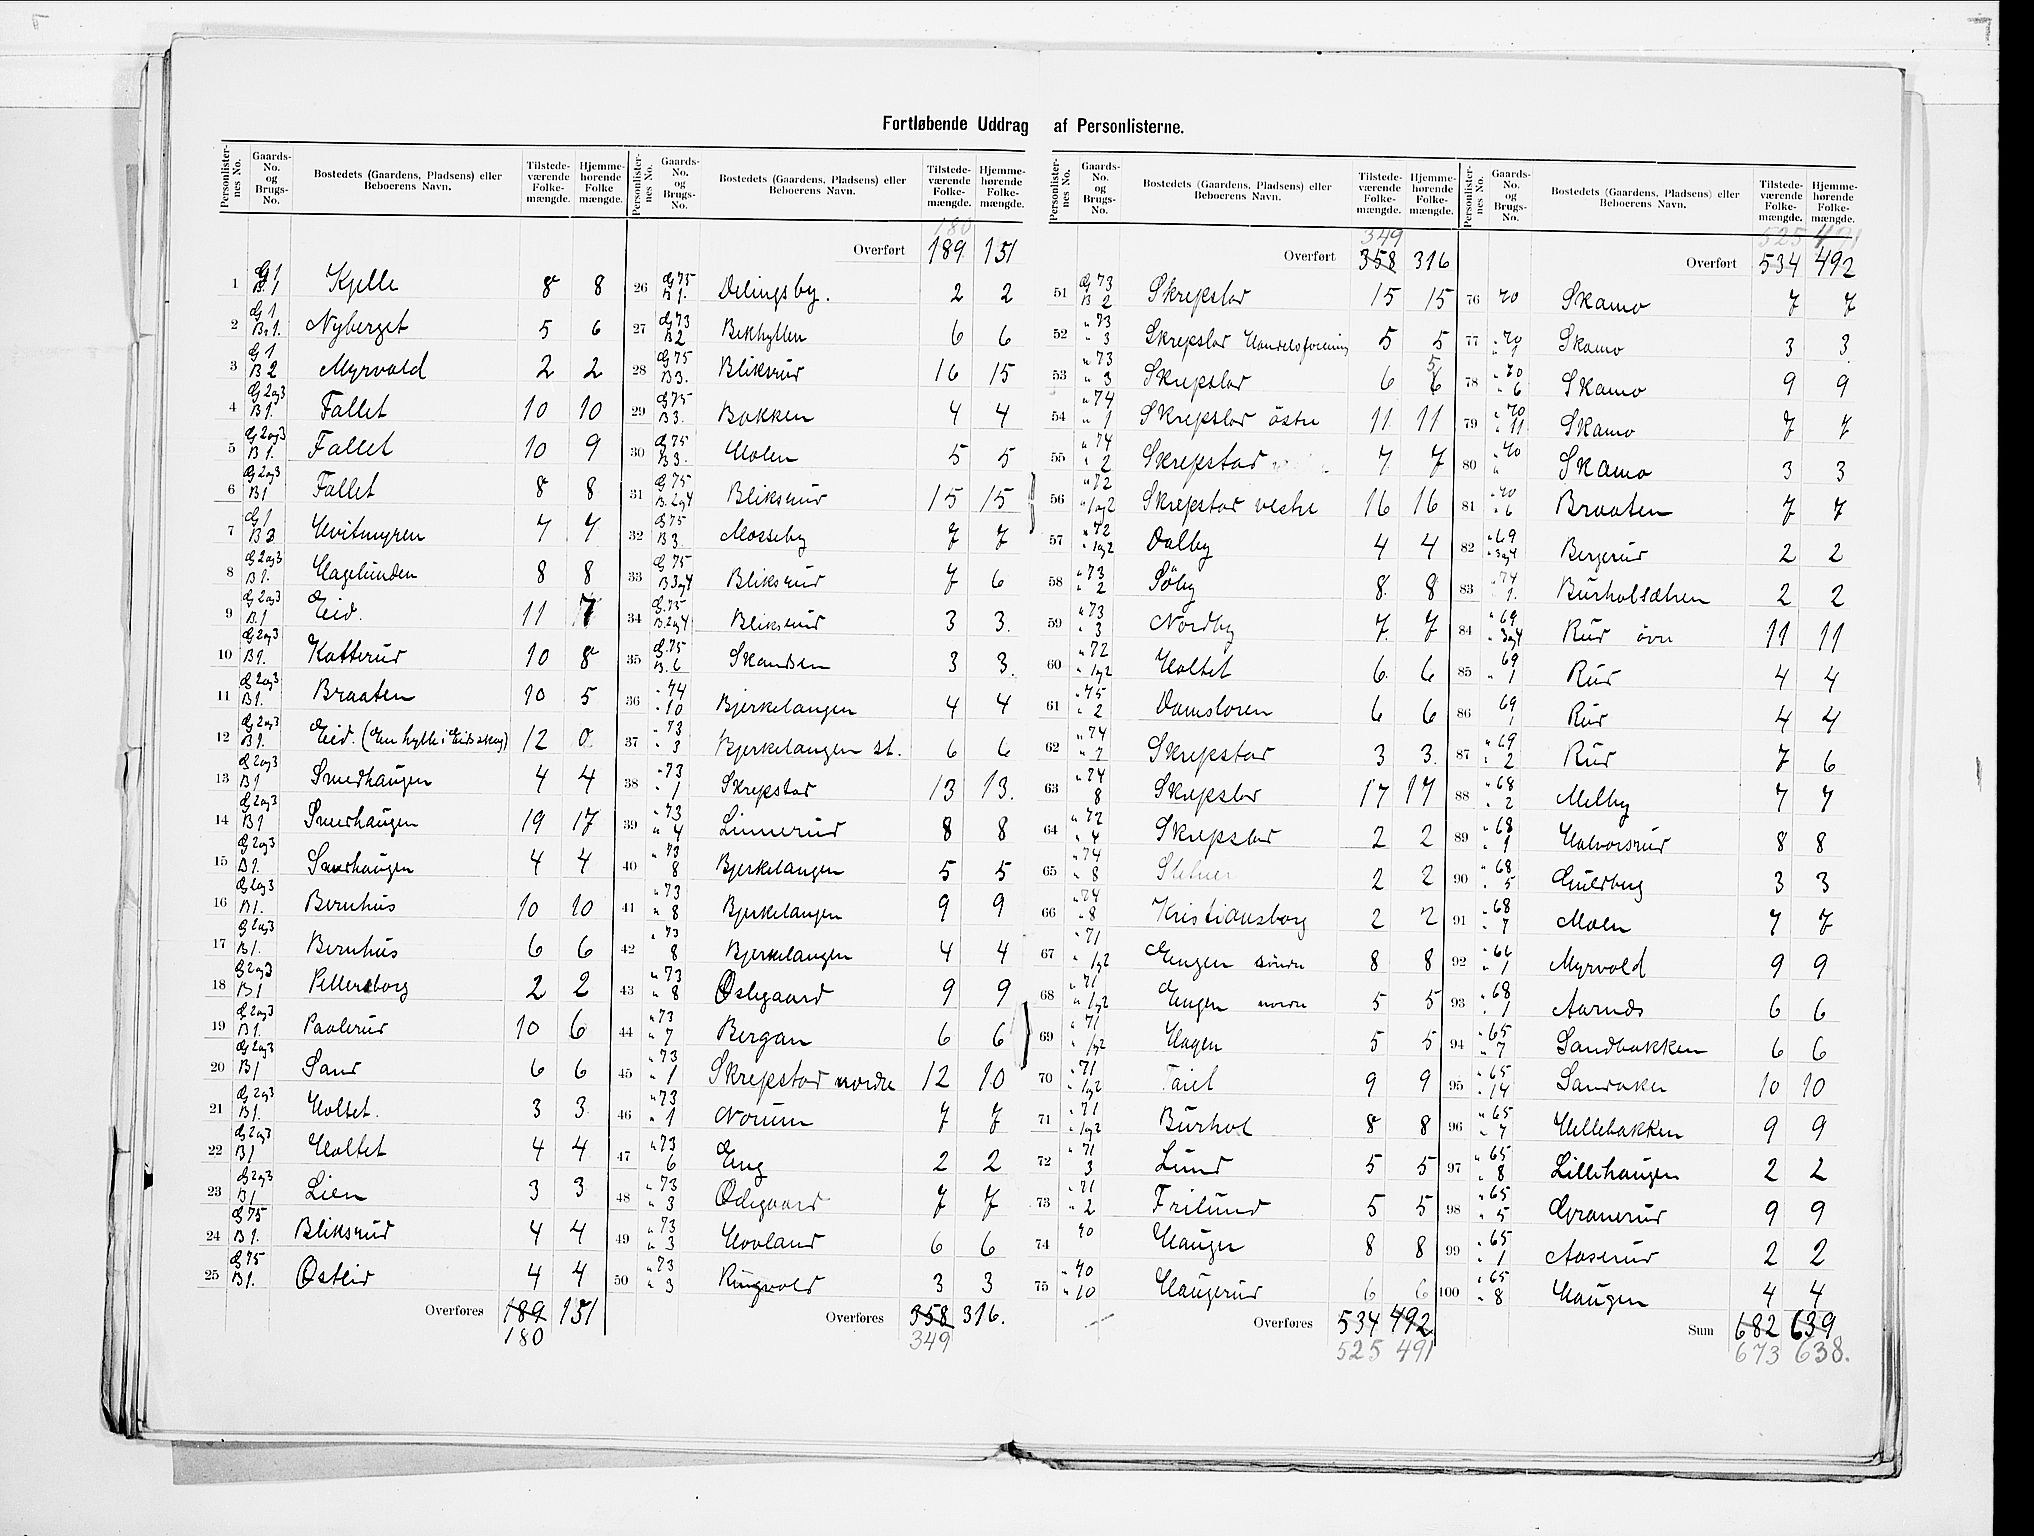 Fortløbende Uddrag af Personlisterne.
Personlisternes No. Gaards-No. og Brugs-No. Bostedets (Gaardens, Pladsens) eller Beboerens Navn. Tilstedeværende Folkemængde. Hjemmehørende Folkemængde.
1 G 1 B 1 Kjelle 8 8
2 G 1 B. 1. Nyberget 5 6
3 G 1 B 2 Myrvold 2 2
4 G 2 og 3 B 1. Fallet 10 10
5 G 2 og 3 B 1. Fallet 10 9
6 G 2 og 3 B 1 Fallet 8 8
7 G 1 B 3 Hvitmyren 7 7
8 G 2 og 3 B 1. Hagelunden 8 8
9 G 2 og 3 B. 1 Eid. 11 7
10 G 2 og 3 B 1. Katterud 10 8
11 G 2 og 3 B 1. Braaten 10 5
12 G 2 og 3 B 1. Eid. (En hytte i Eids skog) 12 0
13 G 2 og 3 B 1 Smedhaugen 4 4
14 G 2 og 3 B 1 Smedhaugen 19 17
15 G 2 og 3 B 1. Smedhaugen 4 4
16 G 2 og 3 B 1. Bernhus 10 10
17 G 2 og 3 B 1. Bernhus 6 6
18 G 2 og 3 B 1 Pettersborg 2 2
19 G 2 og 3 B 1. Paalerud 10 6
20 G 2 og 3 B 1 Sand 6 6
21 G 2 og 3 B 1. Holtet. 3 3
22 G 2 og 3 B 1 Holtet 4 4
23 G 2 og 3 B 1 Lien 3 3
24 G 75 B 1. Bliksrud 4 4
25 G 75 B 1. Østlid 4 4
Overføres 189 151
180
Personlisternes No. Gaards-No. og Brugs-No. Bostedets (Gaardens, Pladsens) eller Beboerens Navn. Tilstedeværende Folkemængde. Hjemmehørende Folkemængde.
180
Overført 189 151
26 G 75 B 1. Delingsby. 2 2
27 G 73 B 2 Bekhytten 6 6
28 G 75 B 3. Bliksrud 16 15
29 G 75 B 3. Bakken 4 4
30 G 75 B 3. Holen 5 5
31 G 75 B. 2 og 4 Bliksrud 15 15
32 G 75 B 3. Mosseby 7 7
33 G 75 B 3 og 4 Bliksrud 7 6
34 G. 75 B. 2 og 4 Bliksrud 3 3.
35 G. 75 B. 6 Skandsen 3 3.
36 " 74 " 10 Bjerkelangen 4 4
37 " 73 " 3 Bjerkelangen st. 6 6
38 " 73 " 1 Skrepstad 13 13.
39 " 73 " 4 Linnerud 8 8
40 " 73 8 Bjerkelangen 5 5
41 " 73 " 8 Bjerkelangen 9 9
42 " 73 8 Bjerkelangen 4 4
43 " 73 " 8 Østgaard 9 9
44 " 73 " 7 Bergan 6 6
45 " 73 " 1 Skrepstad nordre 12 10
46 " 73 " 1 Norum 7 7
47 " 73 6 Eng 2 2
48 " 73 " 3 Ødegaard 7 7
49 " 73 " 3 Hovland 6 6
50 " 73 " 3 Ringvold 3 3
Overføres 358 316.
349
Personlisternes No. Gaards-No. og Brugs-No. Bostedets (Gaardens, Pladsens) eller Beboerens Navn. Tilstedeværende Folkemængde. Hjemmehørende Folkemængde.
349
Overført 358 316
51 G 73 B 2 Skrepstad 15 15
52 " 73 " 3 Skrepstad Handelsforening 5 5
53 " 73 " 3 Skrepstad 6 6 5
54 " 74 " 1 Skrepstad østre 11 11
55 " 74 " 2 Skrepstad 7 7
56 " 72 " 1 og 2 Skrepstad vestre 16 16
57 " 72 " 1 og 2 Dalby 4 4
58 " 73 " 2 Söby 8 8
59 " 73 " 3 Nordby 7 7
60 " 72 " 1 og 2 Holtet 6 6
61 " 75 " 2 Damsloren 6 6
62 " 74 " 2 Skrepstad 3 3.
63 " 74 8 Skrepstad 17 17
64 " 72 " 4 Skrepstad 2 2
65 " 74 " 8 2 2
66 " 74 " 8 Kristiansborg 2 2
67 " 71 " 1 og 2 Engen söndre 8 8
68 " 71 " 1 og 2 Engen nordre 5 5
69 " 71 " 1 og 2 Hagen 5 5
70 " 71 " 1 og 2 Taiet 9 9
71 " 71 " 1 og 2 Burhol 8 8
72 " 71 3 Lund 5 5
73 " 71 " 2 Frilund 5 5
74 70 Haugen 8 8
75 " 70 " 10 Haugerud 6 6
Overføres 534 492
525 491
Personlisternes No. Gaards-No. og Brugs-No. Bostedets (Gaardens, Pladsens) eller Beboerens Navn. Tilstedeværende Folkemængde. Hjemmehørende Folkemængde.
525 491
Overført 534 492
76 70 Skamo 7 7
77 " 70 " 1 Skamo 3 3
78 " 70 " 6 Skamo 9 9
79 " 70 " 11 Skamo 7 7
80 " 70 " Skamo 3 3
81 " 70 " 6 Braaten 7 7
82 " 69 " 3 og 4 Bergerud 2 2
83 " 74 " 1. Burholsætren 2 2
84 " 69 " 3 og 4 Rud övre 11 11
85 69 " 1 Rud 4 4
86 69 1 Rud 4 4
87 " 69 " 2 Rud 7 6
88 " 68 " 2 Melby 7 7
89 " 68 " 1 Halvorsrud 8 8
90 " 68 " 5 Guldberg 3 3
91 " 68 " 7 Moen 7 7
92 " 66 " 1 Myrvold 9 9
93 " 68 " 1 Aarnds 6 6
94 " 65 " 7 Sandbakken 6 6
95 " 65 " 14 Sandaker 10 10
96 " 65 " 7 Hellebakken 9 9
97 " 65 " 8 Lillehaugen 2 2
98 " 65 " 5 Granerud 9 9
99 " 65 " 1 Aaserud 2 2
100 " 65 " 8 Haugen 4 4
Sum 682 639
673 638.